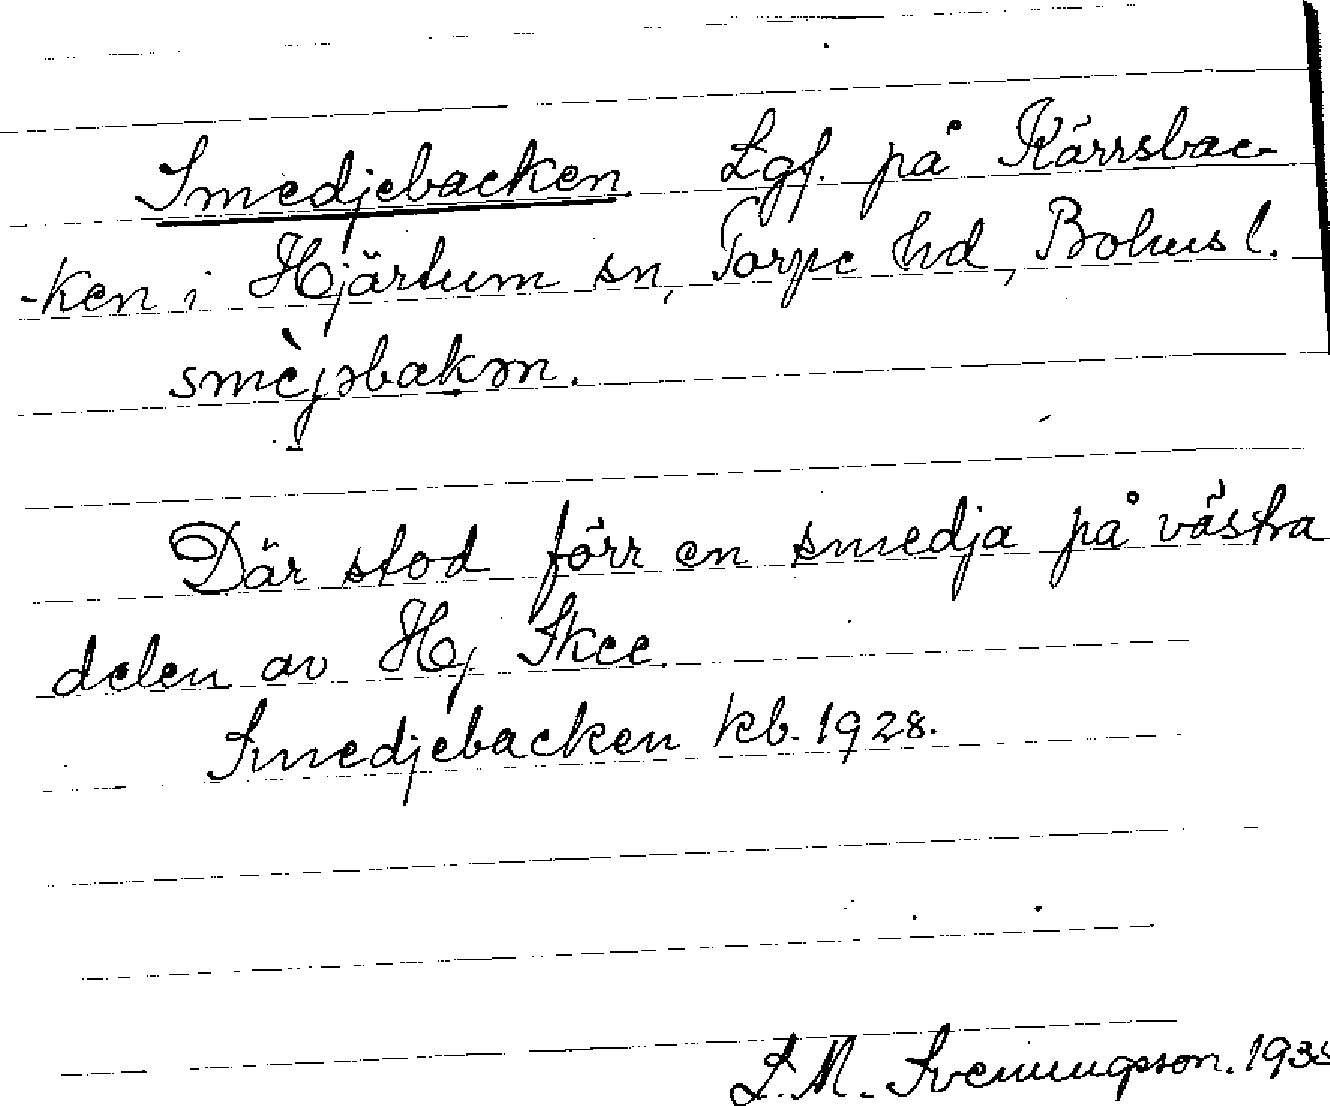 Smedjebacken. Lgf. på Kärrsbac-
-ken i Hjärtum sn, Torpe hd, Bohusl.
smèjəbakən.
Där stod förr en smedja på västra
delen av Hj Skee.
Smedjebacken kb. 1928.
L.M. Svenungsson.